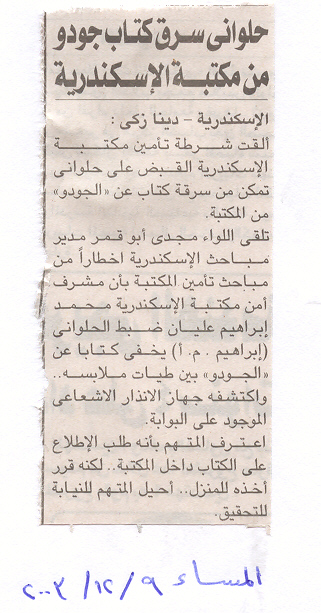 حلوانى سرق كتاب جودو
من مكتبة الإسكندرية
الإسكندرية - دينا زكى :
ألقت شرطة تأمين مكتبة
الإسكندرية القبض على حلوانى
تمكن من سرقة كتاب عن «الجودو»
من المكتبة.
تلقى اللواء مجدى أبو قمر مدير
مباحث الإسكندرية اخطاراً من
مباحث تأمين المكتبة بأن مشرف
أمن مكتبة الإسكندرية محمد
إبراهيم عليان ضبط الحلوانى
(إبراهيم . م. أ) يخفى كتابا عن
«الجودو» بين طيات ملابسه..
واكتشفه جهاز الانذار الاشعاعى
الموجود على البوابة.
اعترف المتهم بأنه طلب الإطلاع
على الكتاب داخل المكتبة.. لكنه قرر
أخذه للمنزل.. أحيل المتهم للنيابة
للتحقيق.
المساء ٩/ ١٢/ ٢٠٠٣